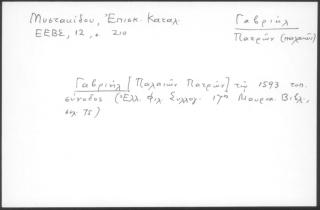 Μυστακίδου, Ἐπισκ. Καταλ.
ΕΕΒΣ, 12, σ. 210
Γαβριήλ
Πατρῶν (παλαιῶν)
Γαβριήλ [Παλαιῶν Πατρῶν] τῷ 1593 τοπ.
σύνοδος (Ἑλλ. Φιλ. Συλλογ. 17ης Μαυροκ. Βιβλ.,
σελ. 75)